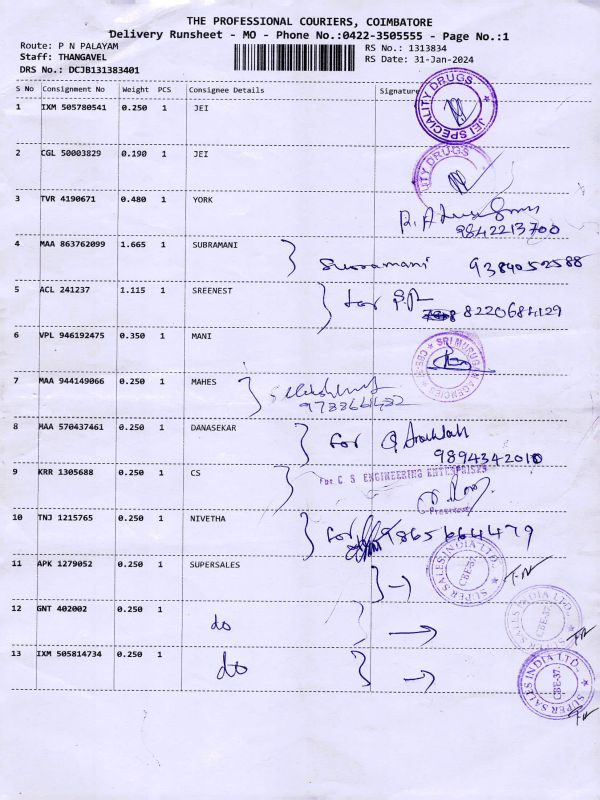 THE PROFESSIONAL COURIERS, COIMBATORE
Delivery Runsheet - MO - Phone No.:0422-3505555 - Page No.:1
Route: P N PALAYAM
RS No.: 1313834
Staff: THANGAVEL
RS Date: 31-Jan-2024
DRS No.: DCJB131383401
S No Consignment No Weight PCS Consignee Details Signature
1 IXM 505780541 0.250 1 JEI
JEI SPECIALITY DRUGS
2 CGL 50003829 0.190 1 JEI
ITY DRUGS
3 TVR 4190671 0.480 1 YORK
9842213700
4 MAA 863762099 1.665 1 SUBRAMANI
9384052588
5 ACL 241237 1.115 1 SREENEST
for
8220684129
6 VPL 946192475 0.350 1 MANI
SRI MURUGAN AGENCIES
7 MAA 944149066 0.250 1 MAHES
8 MAA 570437461 0.250 1 DANASEKAR
for
9894342010
9 KRR 1305688 0.250 1 CS
For C S ENGINEERING ENTERPRISES
10 TNJ 1215765 0.250 1 NIVETHA
for 9865664479
11 APK 1279052 0.250 1 SUPERSALES
SUPER SALES INDIA LTD. CBE-37
12 GNT 402002 0.250 1
do
SUPER SALES INDIA LTD. CBE-37
13 IXM 505814734 0.250 1
do
SUPER SALES INDIA LTD. CBE-37